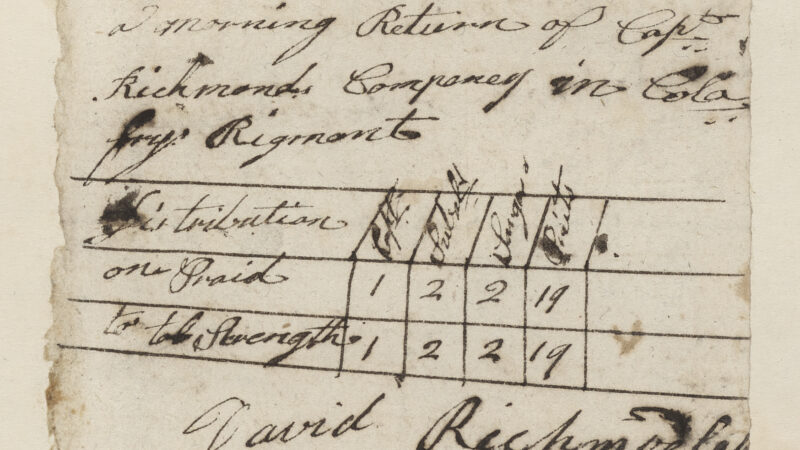 a morning Return of Capt
Richmonds Compeney in Cola
frys Rigment
Distribution Capt Subults Sarga Privits
on Praid 1 2 2 19
to tl Strength 1 2 2 19
David Richmond